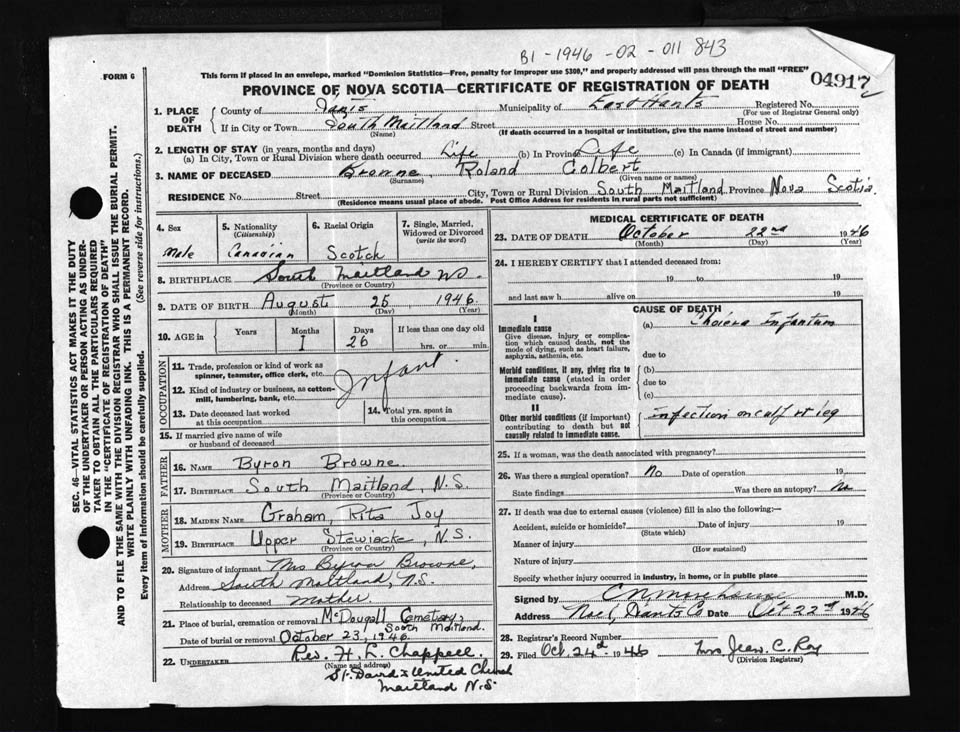 B1-1946-02-011 843
FORM 6
This form if placed in an envelope, marked "Dominion Statistics—Free, penalty for improper use $300," and properly addressed will pass through the mail "FREE"
04917
PROVINCE OF NOVA SCOTIA—CERTIFICATE OF REGISTRATION OF DEATH
1. PLACE OF DEATH
County of Hants Municipality of East Hants Registered No.
(For use of Registrar General only)
If in City or Town South Maitland Street House No.
(Name) (If death occurred in a hospital or institution, give the name instead of street and number)
2. LENGTH OF STAY (in years, months and days)
(a) In City, Town or Rural Division where death occurred Life (b) In Province Life (c) In Canada (if immigrant)
3. NAME OF DECEASED Browne, Roland Colbert
(Surname) (Given name or names)
RESIDENCE No. Street City, Town or Rural Division South Maitland Province Nova Scotia
(Residence means usual place of abode. Post Office Address for residents in rural parts not sufficient)
4. Sex
Male
5. Nationality
(Citizenship)
Canadian
6. Racial Origin
Scotch
7. Single, Married, Widowed or Divorced
(write the word)
8. BIRTHPLACE South Maitland N.S.
(Province or Country)
9. DATE OF BIRTH August 25 1946
(Month) (Day) (Year)
10. AGE in
Years Months Days If less than one day old
1 26 hrs. or min.
OCCUPATION
11. Trade, profession or kind of work as
spinner, teamster, office clerk, etc.
Infant
12. Kind of industry or business, as cotton-
mill, lumbering, bank, etc.
13. Date deceased last worked
at this occupation
14. Total yrs. spent in
this occupation
15. If married give name of wife
or husband of deceased
FATHER
16. NAME Byron Browne
17. BIRTHPLACE South Maitland, N.S.
(Province or Country)
MOTHER
18. MAIDEN NAME Graham, Rita Joy
19. BIRTHPLACE Upper Stewiacke, N.S.
(Province or Country)
20. Signature of informant Mrs Byron Browne,
Address South Maitland, N.S.
Relationship to deceased Mother.
21. Place of burial, cremation or removal McDougall Cemetary, South Maitland.
Date of burial or removal October 23, 1946.
22. UNDERTAKER Rev. H. L. Chappell
(Name and address)
St. David's United Church
Maitland N.S
MEDICAL CERTIFICATE OF DEATH
23. DATE OF DEATH October 22nd 1946
(Month) (Day) (Year)
24. I HEREBY CERTIFY that I attended deceased from:
19 to 19
and last saw h alive on 19
CAUSE OF DEATH
I
Immediate cause
Give disease, injury or complica-
tion which caused death, not the
mode of dying, such as heart failure,
asphyxia, asthenia, etc.
(a) Cholera Infantum
due to
Morbid conditions, if any, giving rise to
immediate cause (stated in order
proceeding backwards from im-
mediate cause).
(b)
due to
(c)
II
Other morbid conditions (if important)
contributing to death but not
causally related to immediate cause.
infection on calf rt leg
25. If a woman, was the death associated with pregnancy?
26. Was there a surgical operation? No Date of operation 19
State findings Was there an autopsy? No
27. If death was due to external causes (violence) fill in also the following:—
Accident, suicide or homicide? Date of injury 19
(State which)
Manner of injury
(How sustained)
Nature of injury
Specify whether injury occurred in industry, in home, or in public place
Signed by M.D.
Address Noel, Hants Co Date Oct 22nd 1946
28. Registrar's Record Number
29. Filed Oct. 24th 1946 Mrs. Jean C. Roy
(Division Registrar)
SEC. 46—VITAL STATISTICS ACT MAKES IT THE DUTY
OF THE UNDERTAKER OR PERSON ACTING AS UNDER-
TAKER TO OBTAIN ALL THE PARTICULARS REQUIRED
IN THE "CERTIFICATE OF REGISTRATION OF DEATH"
AND TO FILE THE SAME WITH THE DIVISION REGISTRAR WHO SHALL ISSUE THE BURIAL PERMIT.
WRITE PLAINLY WITH UNFADING INK. THIS IS A PERMANENT RECORD.
Every item of information should be carefully supplied. (See reverse side for instructions.)